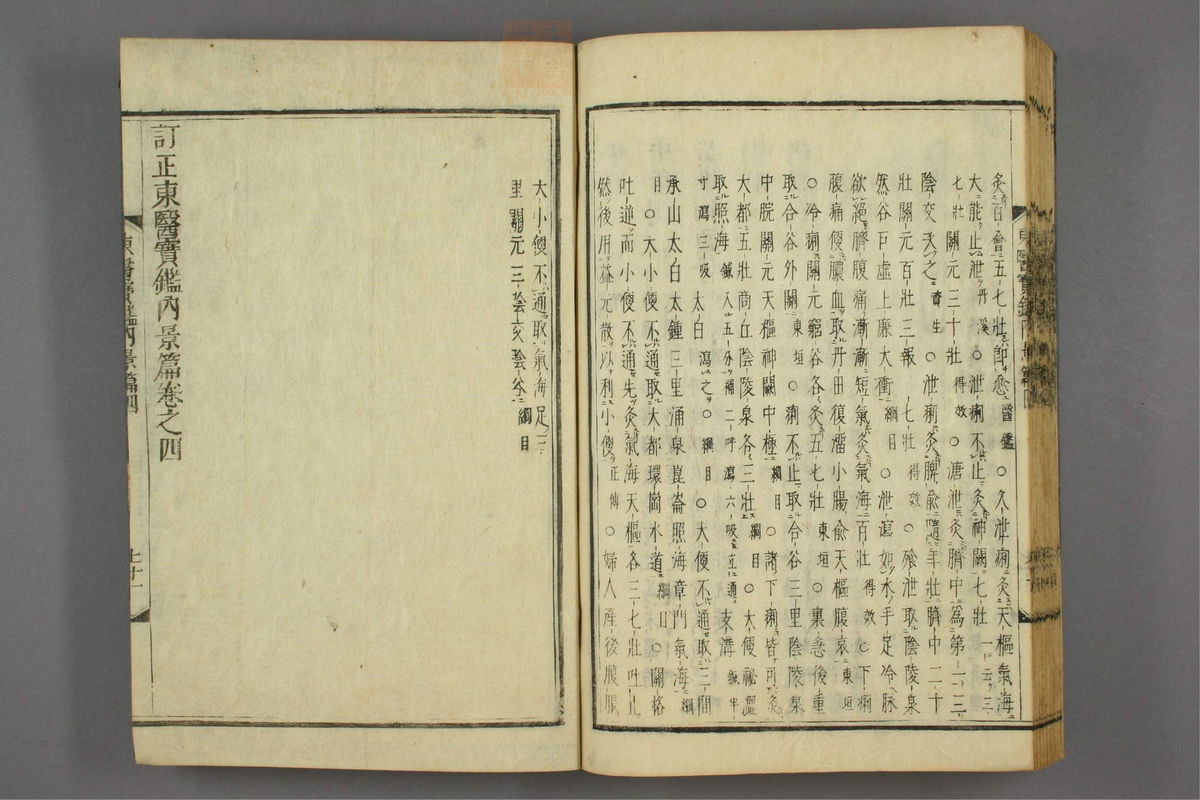 灸百會五七壯卽愈醫鑑○久泄痢灸天樞氣海
大能止泄丹溪○泄痢不止灸神闕七壯一云三
七壯關元三十壯得效○溏泄灸臍中爲第一三
陰交次之資生○泄痢灸脾俞隨年壯臍中二十
壯關元百壯三報七壯得效○飧泄取陰陵泉
然谷巨虛上廉大衝綱目○泄瀉如水手足冷脉
欲絕臍腹痛漸漸短氣灸氣海百壯得效○下痢
腹痛便膿血取丹田復溜小腸俞天樞腹哀東垣
○冷痢關元窮谷各灸五七壯東垣○裏急後重
取合谷外關東垣○痢不止取合谷三里陰陵泉
中脘關元天樞神闕中極綱目○諸下痢皆可灸
大都五壯商丘陰陵泉各三壯綱目○大便祕澀
取照海鍼入五分補二呼瀉六吸立通支溝鍼半
寸瀉三吸太白瀉之○綱目○大便不通取三間
承山太白太鍾三里涌泉崑崙照海章門氣海綱
目○大小便不通取大都環岡水道綱目○關格
吐逆而小便不通先灸氣海天樞各三七壯吐止
然後用益元散以利小便正傳○婦人産後腹脹
大小便不通取氣海足三
里關元三陰交陰谷綱目
訂正東醫寶鑑內景篇卷之四
東醫寶鑑內景篇四